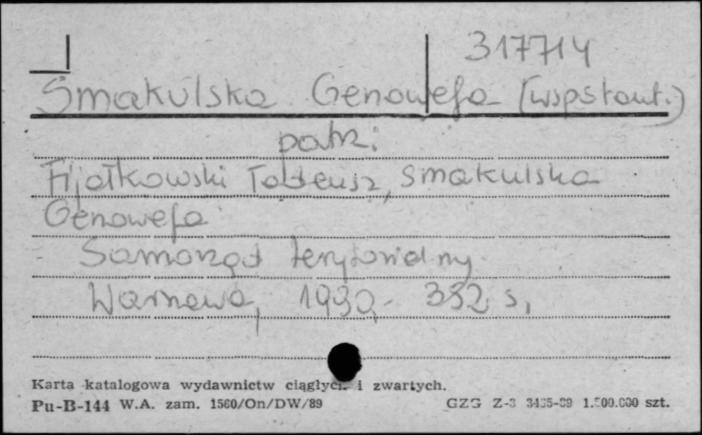 317714
Smakulska Genowefa (współaut.)
patrz:
Fijałkowski Tadeusz, Smakulska
Genowefa
Samorząd terytorialny
Warszawa, 1990. 332 s.
Karta katalogowa wydawnictw ciągłych i zwartych.
Pu-B-144 W.A. zam. 1560/On/DW/89 GZG Z-3 3435-89 1.500.000 szt.